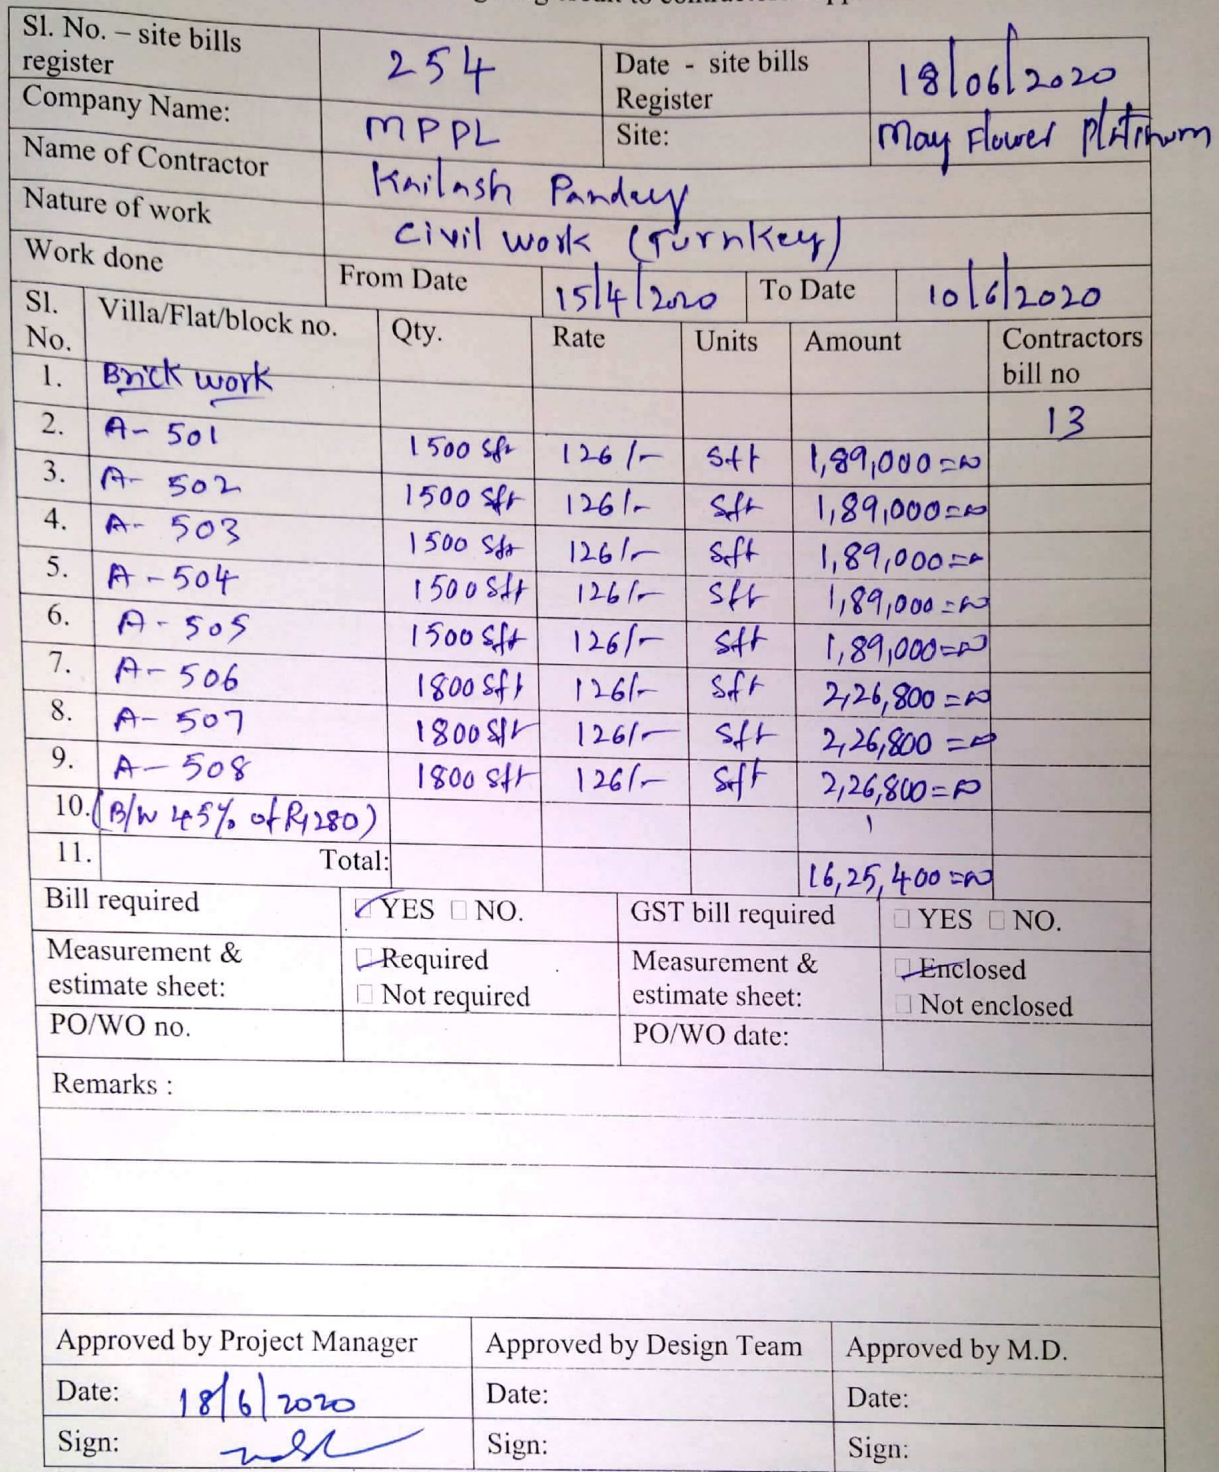 Sl. No. – site bills register 254 Date - site bills Register 18/06/2020
Company Name: MPPL Site: May Flower Platinum
Name of Contractor Kailash Pandey
Nature of work Civil work (Turnkey)
Work done From Date 15/4/2020 To Date 10/6/2020
Sl. No. Villa/Flat/block no. Qty. Rate Units Amount Contractors bill no
1. Brick work
13
2. A- 501 1500 sft 126/- sft 1,89,000=00
3. A- 502 1500 sft 126/- sft 1,89,000=00
4. A- 503 1500 sft 126/- sft 1,89,000=00
5. A-504 1500 sft 126/- sft 1,89,000=00
6. A-505 1500 sft 126/- sft 1,89,000=00
7. A-506 1800 sft 126/- sft 2,26,800=00
8. A-507 1800 sft 126/- sft 2,26,800=00
9. A-508 1800 sft 126/- sft 2,26,800=00
10. (B/W 45% of 280)
11. Total: 16,25,400=00
Bill required YES NO. GST bill required YES NO.
Measurement & estimate sheet: Required Not required Measurement & estimate sheet: Enclosed Not enclosed
PO/WO no. PO/WO date:
Remarks :
Approved by Project Manager Approved by Design Team Approved by M.D.
Date: 18/6/2020 Date: Date:
Sign: Sign: Sign: